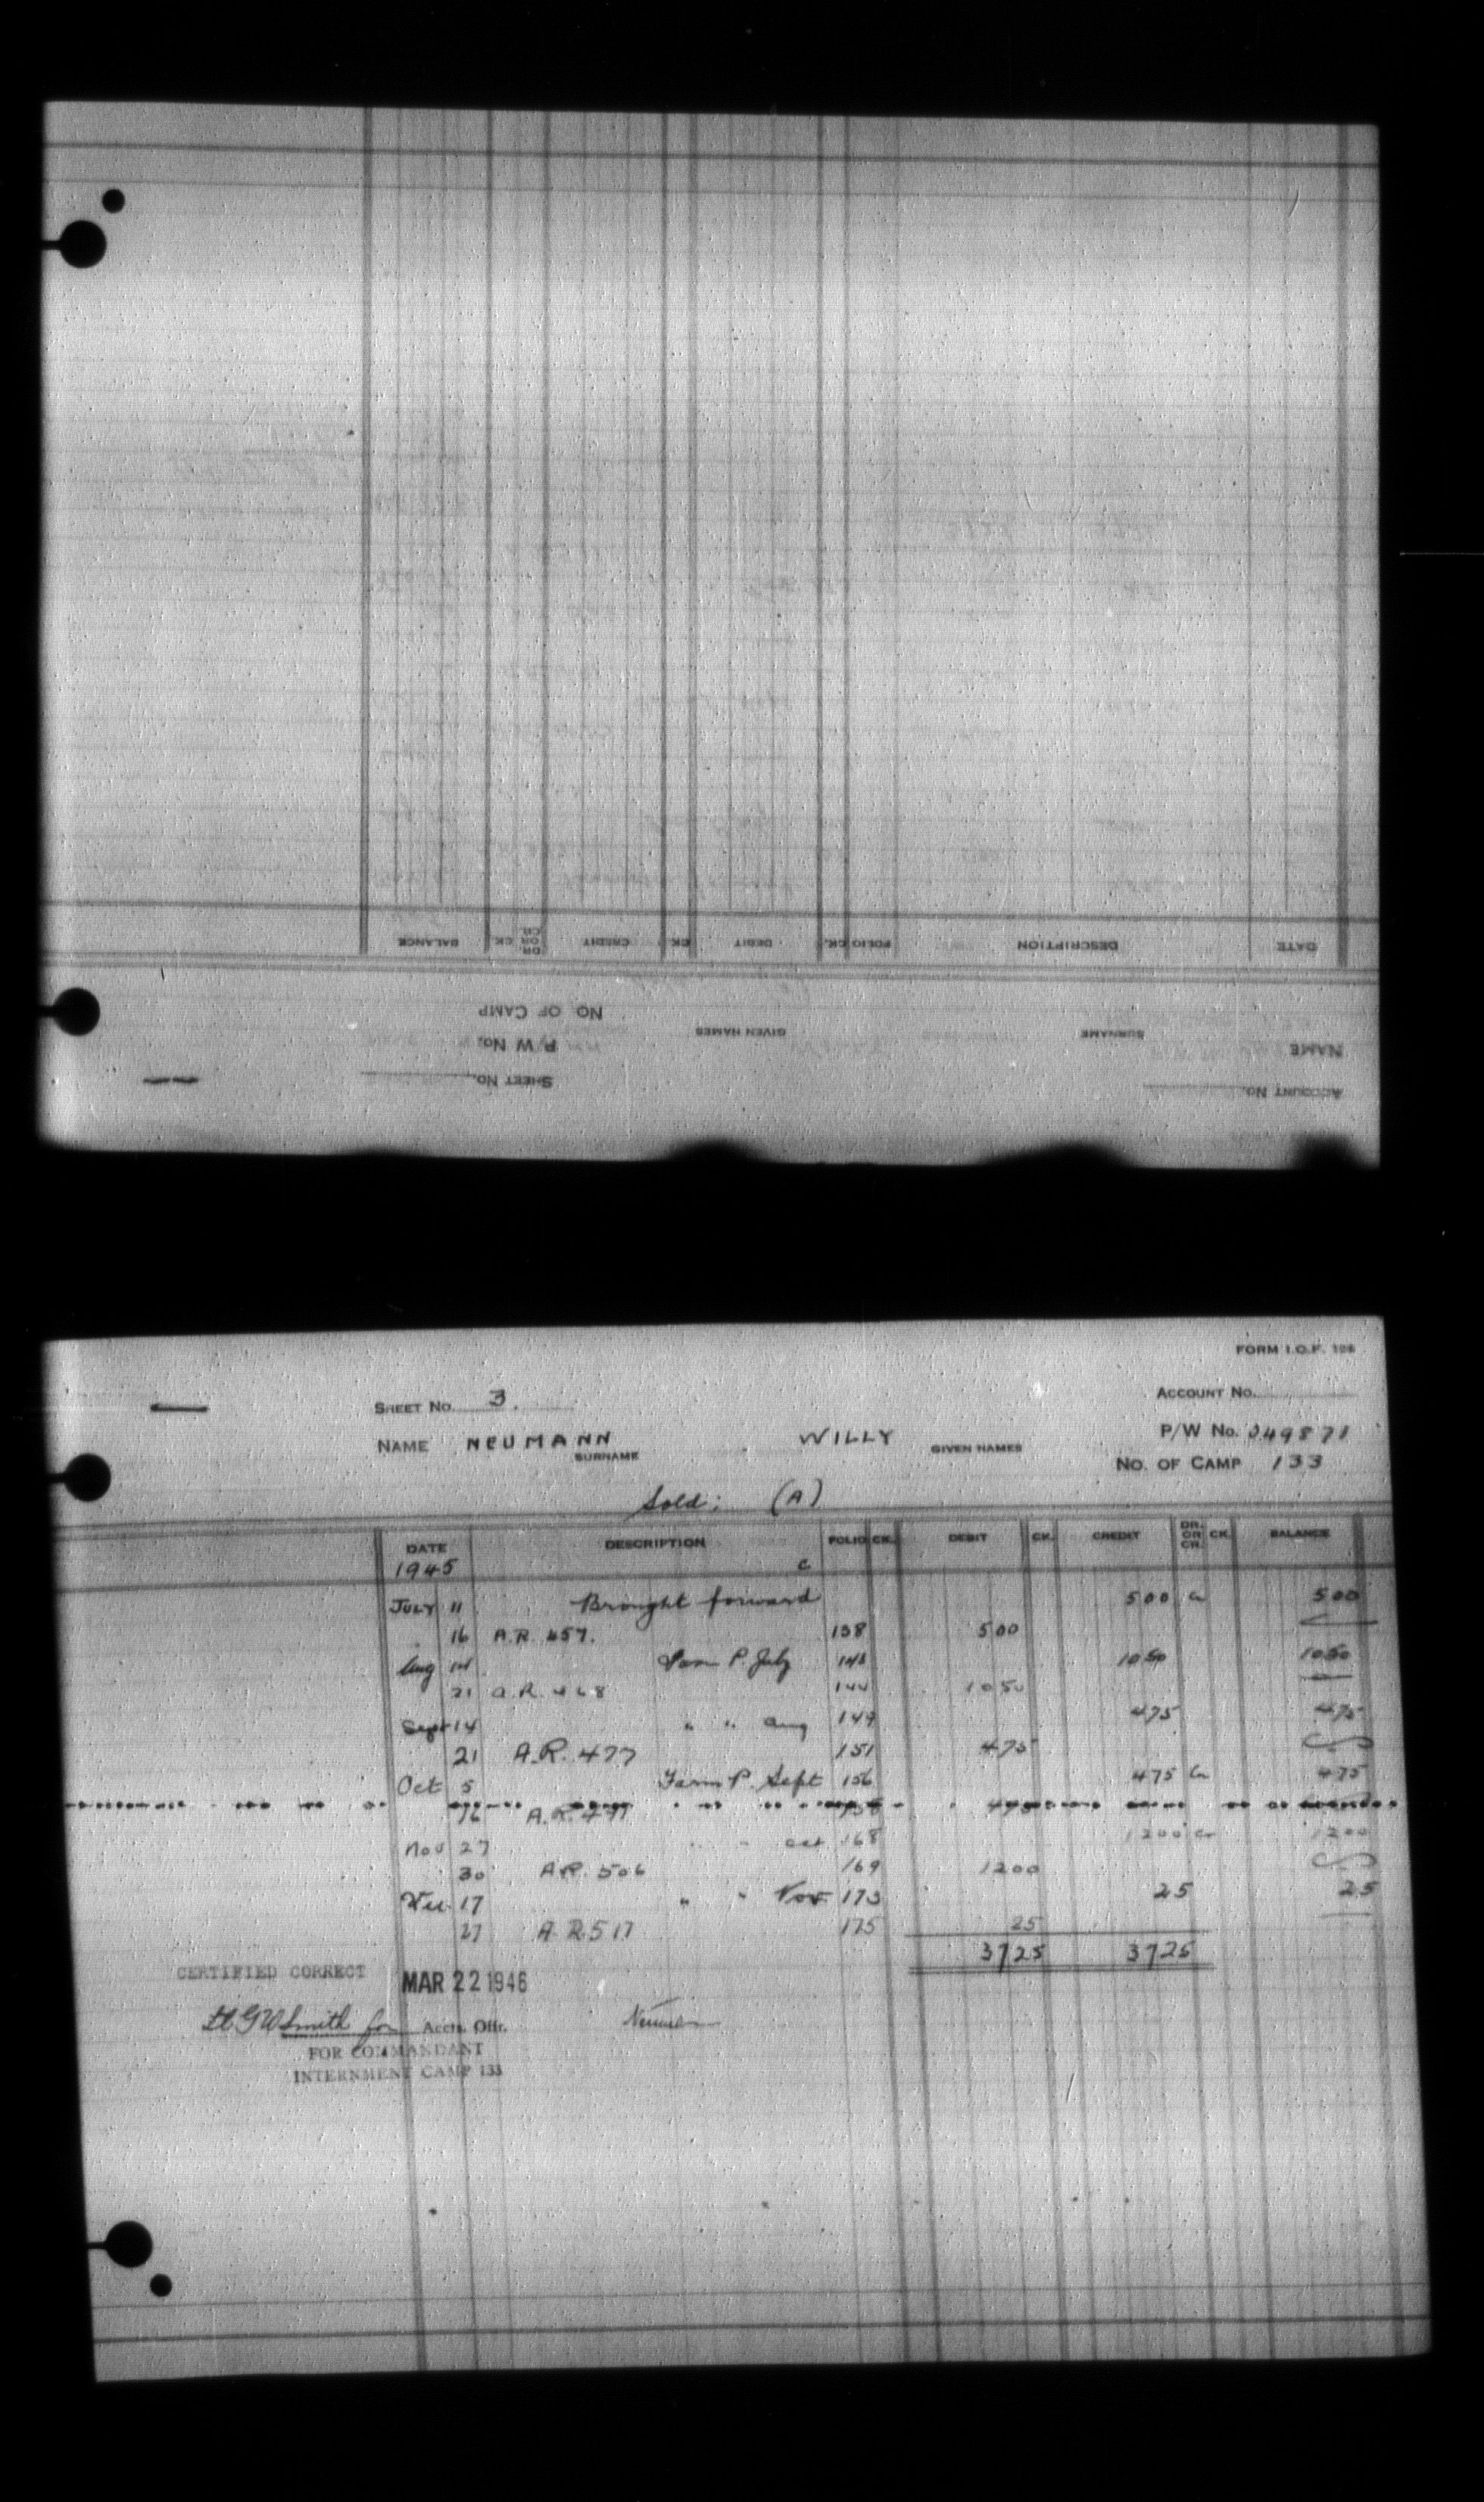 DATE DESCRIPTION FOLIO CK. DEBIT CK. CREDIT DR. OR CR. CK. BALANCE
NO. OF CAMP
NAME SURNAME GIVEN NAMES P/W No.
ACCOUNT No. SHEET No.
FORM I.O.F.
SHEET No. 3. ACCOUNT No.
NAME NEUMANN WILLY P/W No. 049871
SURNAME GIVEN NAMES
NO. OF CAMP 133
Sold: (A)
DATE DESCRIPTION FOLIO CK. DEBIT CK. CREDIT DR. OR CR. CK. BALANCE
1945 c
JULY 11 Brought forward 500 Cr 500
16 A.R. 457. 138 500
Aug 14 Farm P. July 143 1050 1050
21 A.R. 468 144 1050
Sept 14 " " Aug 149 475 475
21 A.R. 477 151 475
Oct 5 Farm P. Sept 156 475 Cr 475
16 A.R. 475
Nov 27 " " Oct 168 1200 Cr 1200
30 A.R. 506 169 1200
Dec 17 " " Nov 173 25 25
27 A.R. 517 175 25
3725 3725
CERTIFIED CORRECT MAR 22 1946
Lt GW Smith for Accts. Offr. Neumann
FOR COMMANDANT
INTERNMENT CAMP 133